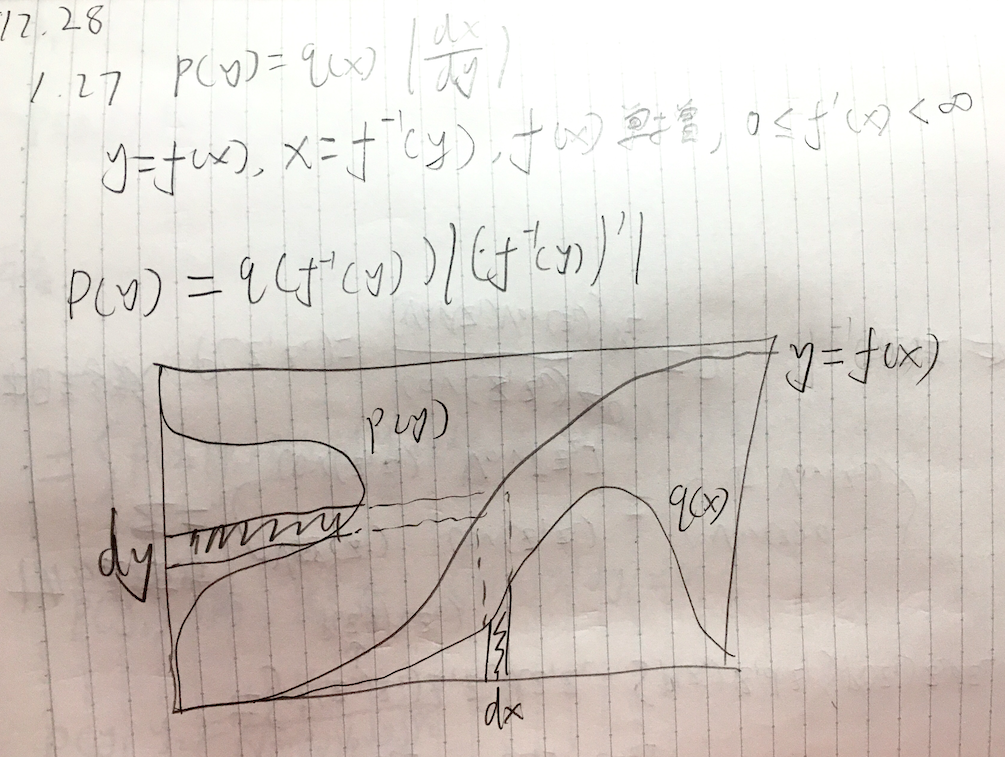 12.28
1.27 p(y)=q(x) |dx/dy|
y=f(x), x=f⁻¹(y), f(x) 单增, 0≤f'(x)<∞
p(y) = q(f⁻¹(y))|(f⁻¹(y))'|
y=f(x)
p(y)
q(x)
dy
dx